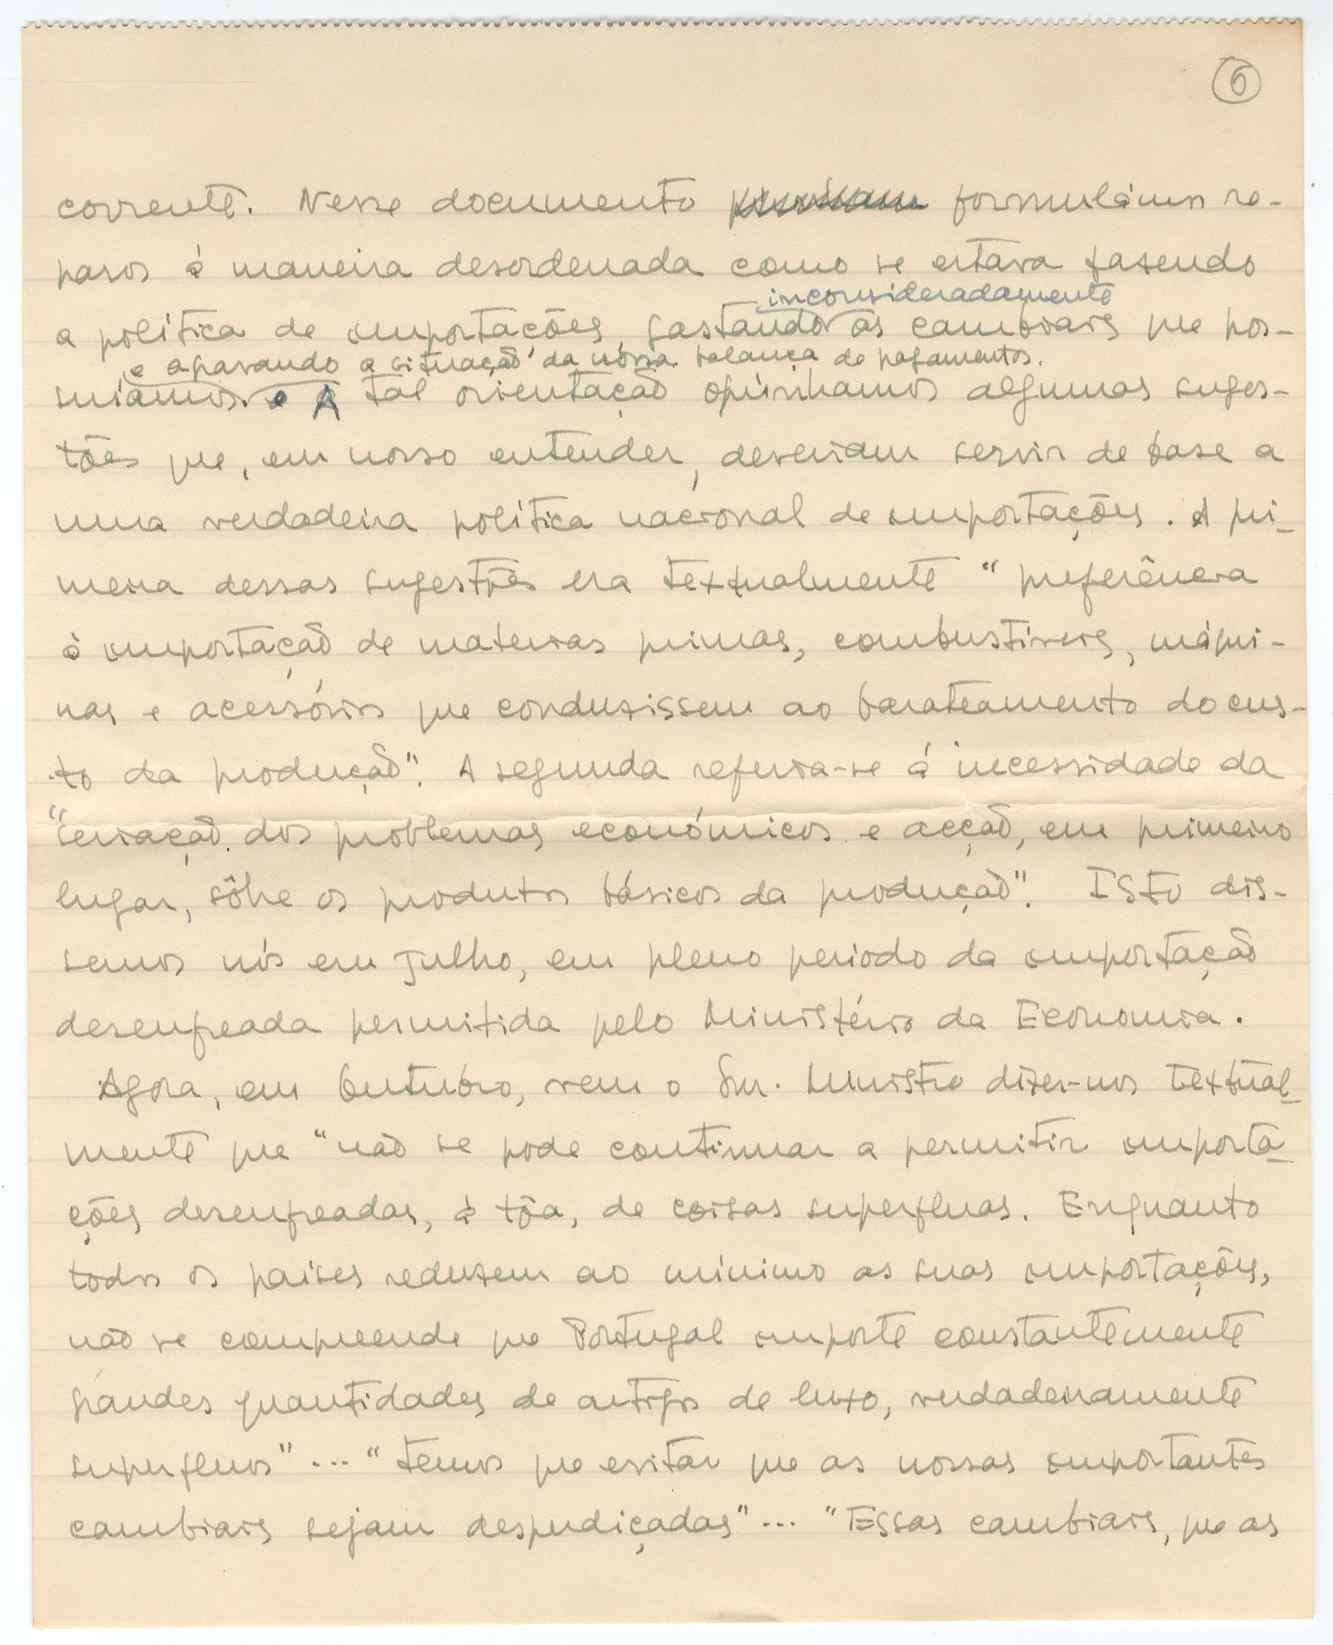 6
corrente. Nesse documento formulámos re-
paros á maneira desordenada como se estava fazendo
inconsideradamente
a política de importações, gastando as cambiais que pos-
e agravando a situação da nossa balança de pagamentos.
suíamos. A tal orientação opúnhamos algumas suges-
tões que, em nosso entender, deveriam servir de base a
uma verdadeira política nacional de importações. A pri-
meira dessas sugestões era textualmente "preferência
á importação de materias primas, combustíveis, máqui-
nas e acessórios que conduzissem ao barateamento do cus-
to da produção". A segunda referia-se á necessidade da
"seriação dos problemas económicos e acção, em primeiro
lugar, sôbre os produtos básicos da produção". Isto dis-
semos nós em Julho, em pleno periodo da importação
desenfreada permitida pelo Ministério da Economia.
Agora, em Outubro, vem o Snr. Ministro dizer-nos textual-
mente que "não se pode continuar a permitir importa-
ções desenfreadas, á tôa, de coisas superfluas. Enquanto
todos os países reduzem ao mínimo as suas importações,
não se compreende que Portugal importe constantemente
grandes quantidades de artigos de luxo, verdadeiramente
superfluos" ... "temos que evitar que as nossas importantes
cambiais sejam desperdiçadas" ... "Essas cambiais, que as